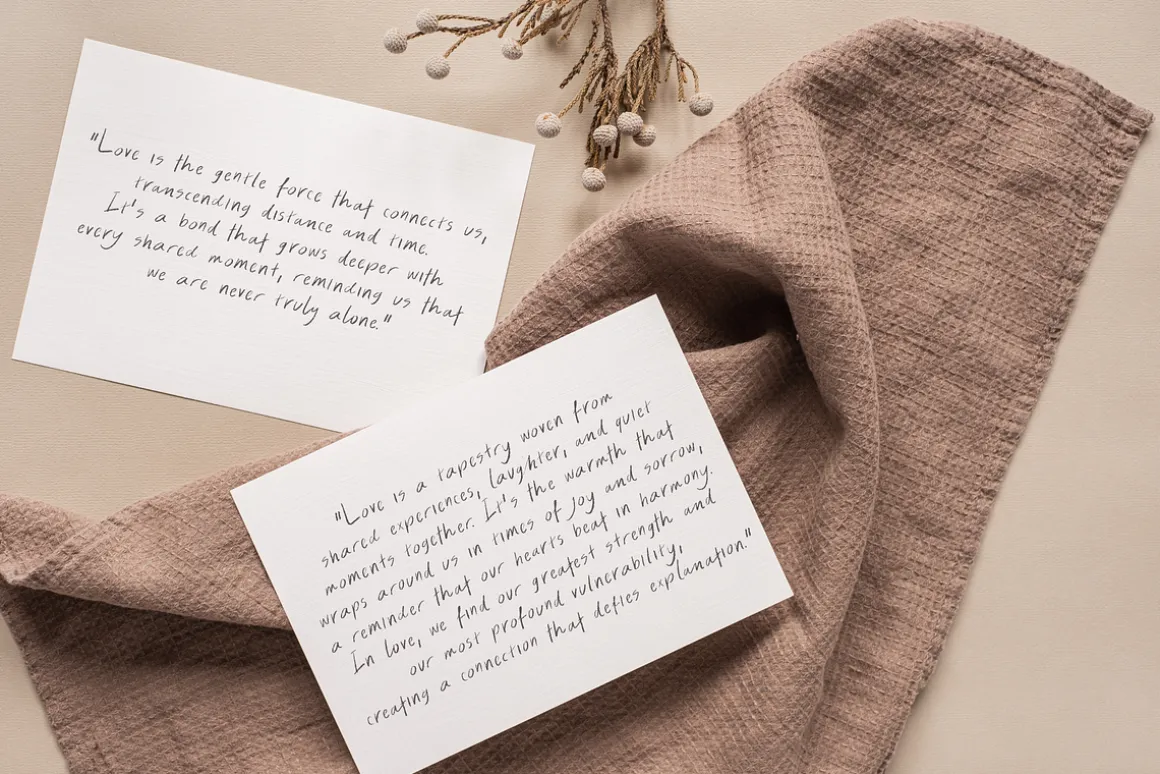 "Love is the gentle force that connects us,
transcending distance and time.
It's a bond that grows deeper with
every shared moment, reminding us that
we are never truly alone."
"Love is a tapestry woven from
shared experiences, laughter, and quiet
moments together. It's the warmth that
wraps around us in times of joy and sorrow,
a reminder that our hearts beat in harmony.
In love, we find our greatest strength and
our most profound vulnerability,
creating a connection that defies explanation."